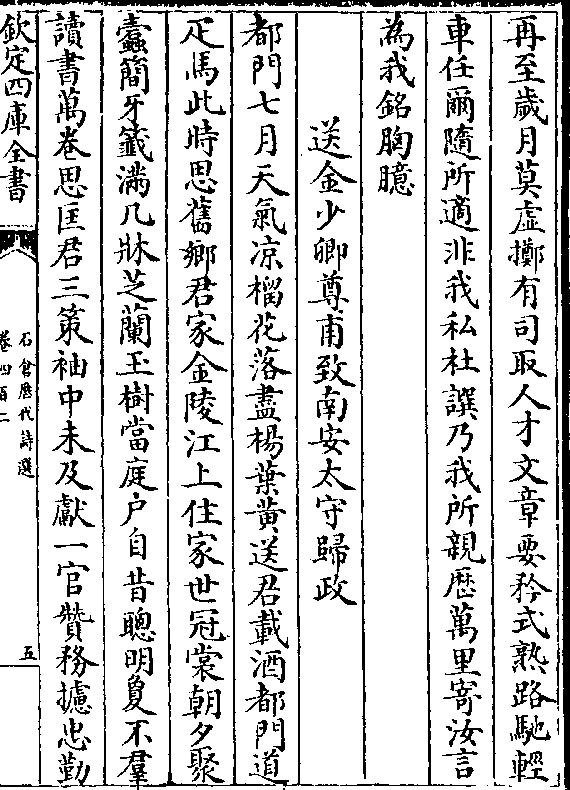 再至歲月莫虚擲有司取人才文章要矜式熟路馳輕
車任爾隨所適非我私杜譔乃我所親歴萬里寄汝言
為我銘胸臆
送金少卿尊甫致南安太守歸政
都門七月天氣凉榴花落盡楊葉黄送君載酒都門道
疋馬此時思舊鄉君家金陵江上住家世冠裳朝夕聚
蠧簡牙籤滿几牀芝蘭玉樹當庭户自昔聰明夐不羣
讀書萬卷思匡君三策袖中未及獻一官贊務攄忠勤
欽定四庫全書
石倉歴代詩選
卷四百二
五